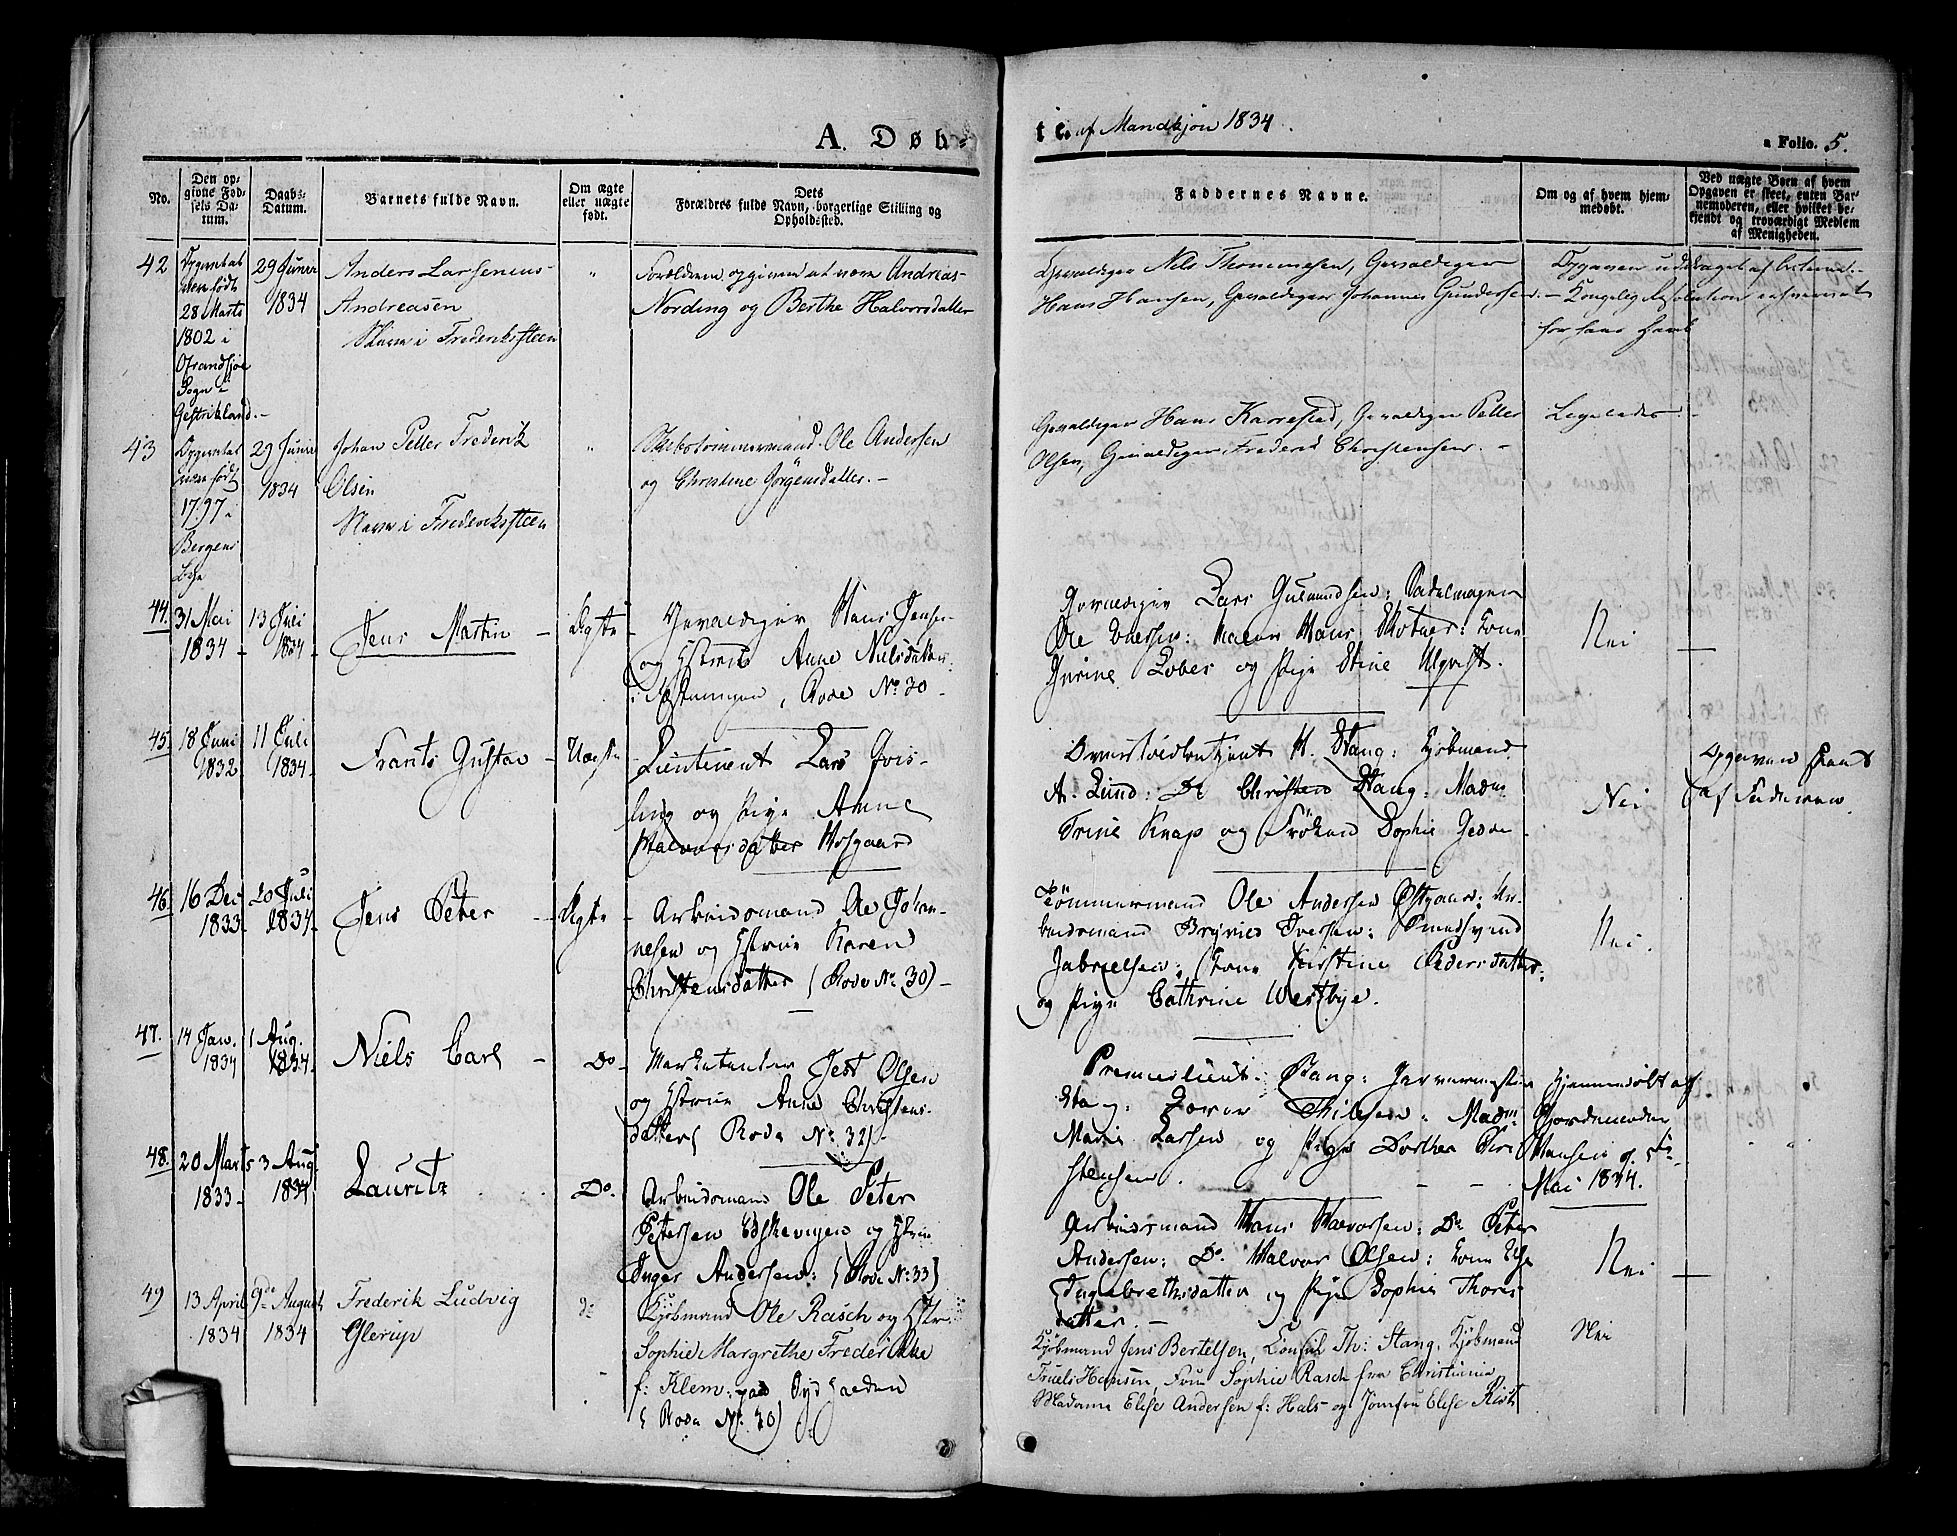 A. Døb-
te. af Mandkjön 1834.
a Folio. 5.
No.
Den op-
givne Fød-
sels Da-
tum.
Daabs-
Datum.
Barnets fulde Navn.
Om ægte
eller uægte
født.
Dets
Forældres fulde Navn, borgerlige Stilling og
Opholdssted.
Faddernes Navne.
Om og af hvem hjem-
medøbt.
Ved uægte Børn af hvem
Opgaven er skeet, enten Bar-
nemoderen, eller hvilket be-
kjendt og troværdigt Medlem
af Menigheden.
42
Opgivet at
være født
28 Marts
1802 i
Sogn i
Gestrikland.-
29 Juni
1834
Anders Larsenius
Andreasen
Slave i Frederikssteen
"
Forældrene opgiven at være Andreas
Nording og Berthe Halvorsdatter
Gevaldiger Nils Thommesen, Gevaldiger
Hans Hansen, Gevaldiger Johannes Gundersen.-
Opgaven uddraget af
Kongelig Resolution
for
43
Opgivet at
være født
1797 i
Bergens
29 Juni
1834
Johan Petter Frederik
Olsen
Slave i Frederikssteen
"
Skibstömmermand Ole Andersen
og Christine Jörgensdatter.-
Gevaldiger Hans Karrestad, Gevaldiger Petter
Olsen, Gevaldiger Frederik Christensen.-
Ligeledes
44.
31 Mai
1834
13 Juli
1834
Jens Martin
Ægte
Gevaldiger Hans Jensen
og Hstrue Anne Nielsdatter
i Fæstningen, Rode No 30
Gevaldiger Lars Gulmundsen: Sadelmager
Ole Iversen: Hans Skotner: Kone
Gurine Lober og Pige Stine Ulqvist.
Nei
45.
18 Juni
1832
11 Juli
1834
Frants Gustav
Uægte
Lieutenent Lars Qvis-
ling og Pige Anne
Halvorsdatter Mosgaard
H. Stang: Kjöbmand
A. Lund: Do Christen Stang: Madm
Trine Knap og Fröken Sophie Gedde
Nei
Opgaven skeet
af Faderen.
46.
16 Dec
1833
20 Juli
1834
Jens Peter
Ægte
Arbeidsmand Ole Johan-
nesen og Hstrue Karen
Christensdatter (Rode No 30)
Tömmermand Ole Andersen Østgaard: Ar-
beidsmand Brynild Iversen: Smedsvend
Gabrielsen: Kone Kirstine Pedersdatter:
og Pige Cathrine Westbye.
Nei.
47.
14 Jan.
1834
1 Aug.
1834
Niels Carl
Do
Marketenter Jest Olsen
og Hstrue Anne Christens-
datter (Rode No 32)
Premierlieut. Stang:
Stang: Thilesen: Madm
Marie Larsen og Pige Dorthea Chri
stensen.
Hjemmedöbt af
Gjordemoder
Hansen d. 5te
Mai 1834.
48.
20 Marts
1833
3 Aug
1834
Lauritz
Do.
Arbeidsmand Ole Peter
Petersen Edskevigen og Hstrue
Inger Andersen: (Rode No 33)
Arbeidsmand Hans Halvorsen: Do Peter
Andersen: Do. Halvor Olsen: Kone Else
Ingebrethsdatter og Pige Sophie Thores
datter.-
Nei
49
13 April
1834
9de August
1834
Frederik Ludvig
Glerup
do
Kjöbmand Ole Rasch og Hstr.
Sophie Margrethe Frederikke
f: Klem: paa Sydsieden
(Rode No 30)
Kjöbmand Jens Bertelsen, Consul Th: Stang, Kjöbmand
Truels Hansen, Frue Sophie Rasch fra Christiania
Madame Elise Andersen f: Hals og Jomfru Elise Rist
Nei